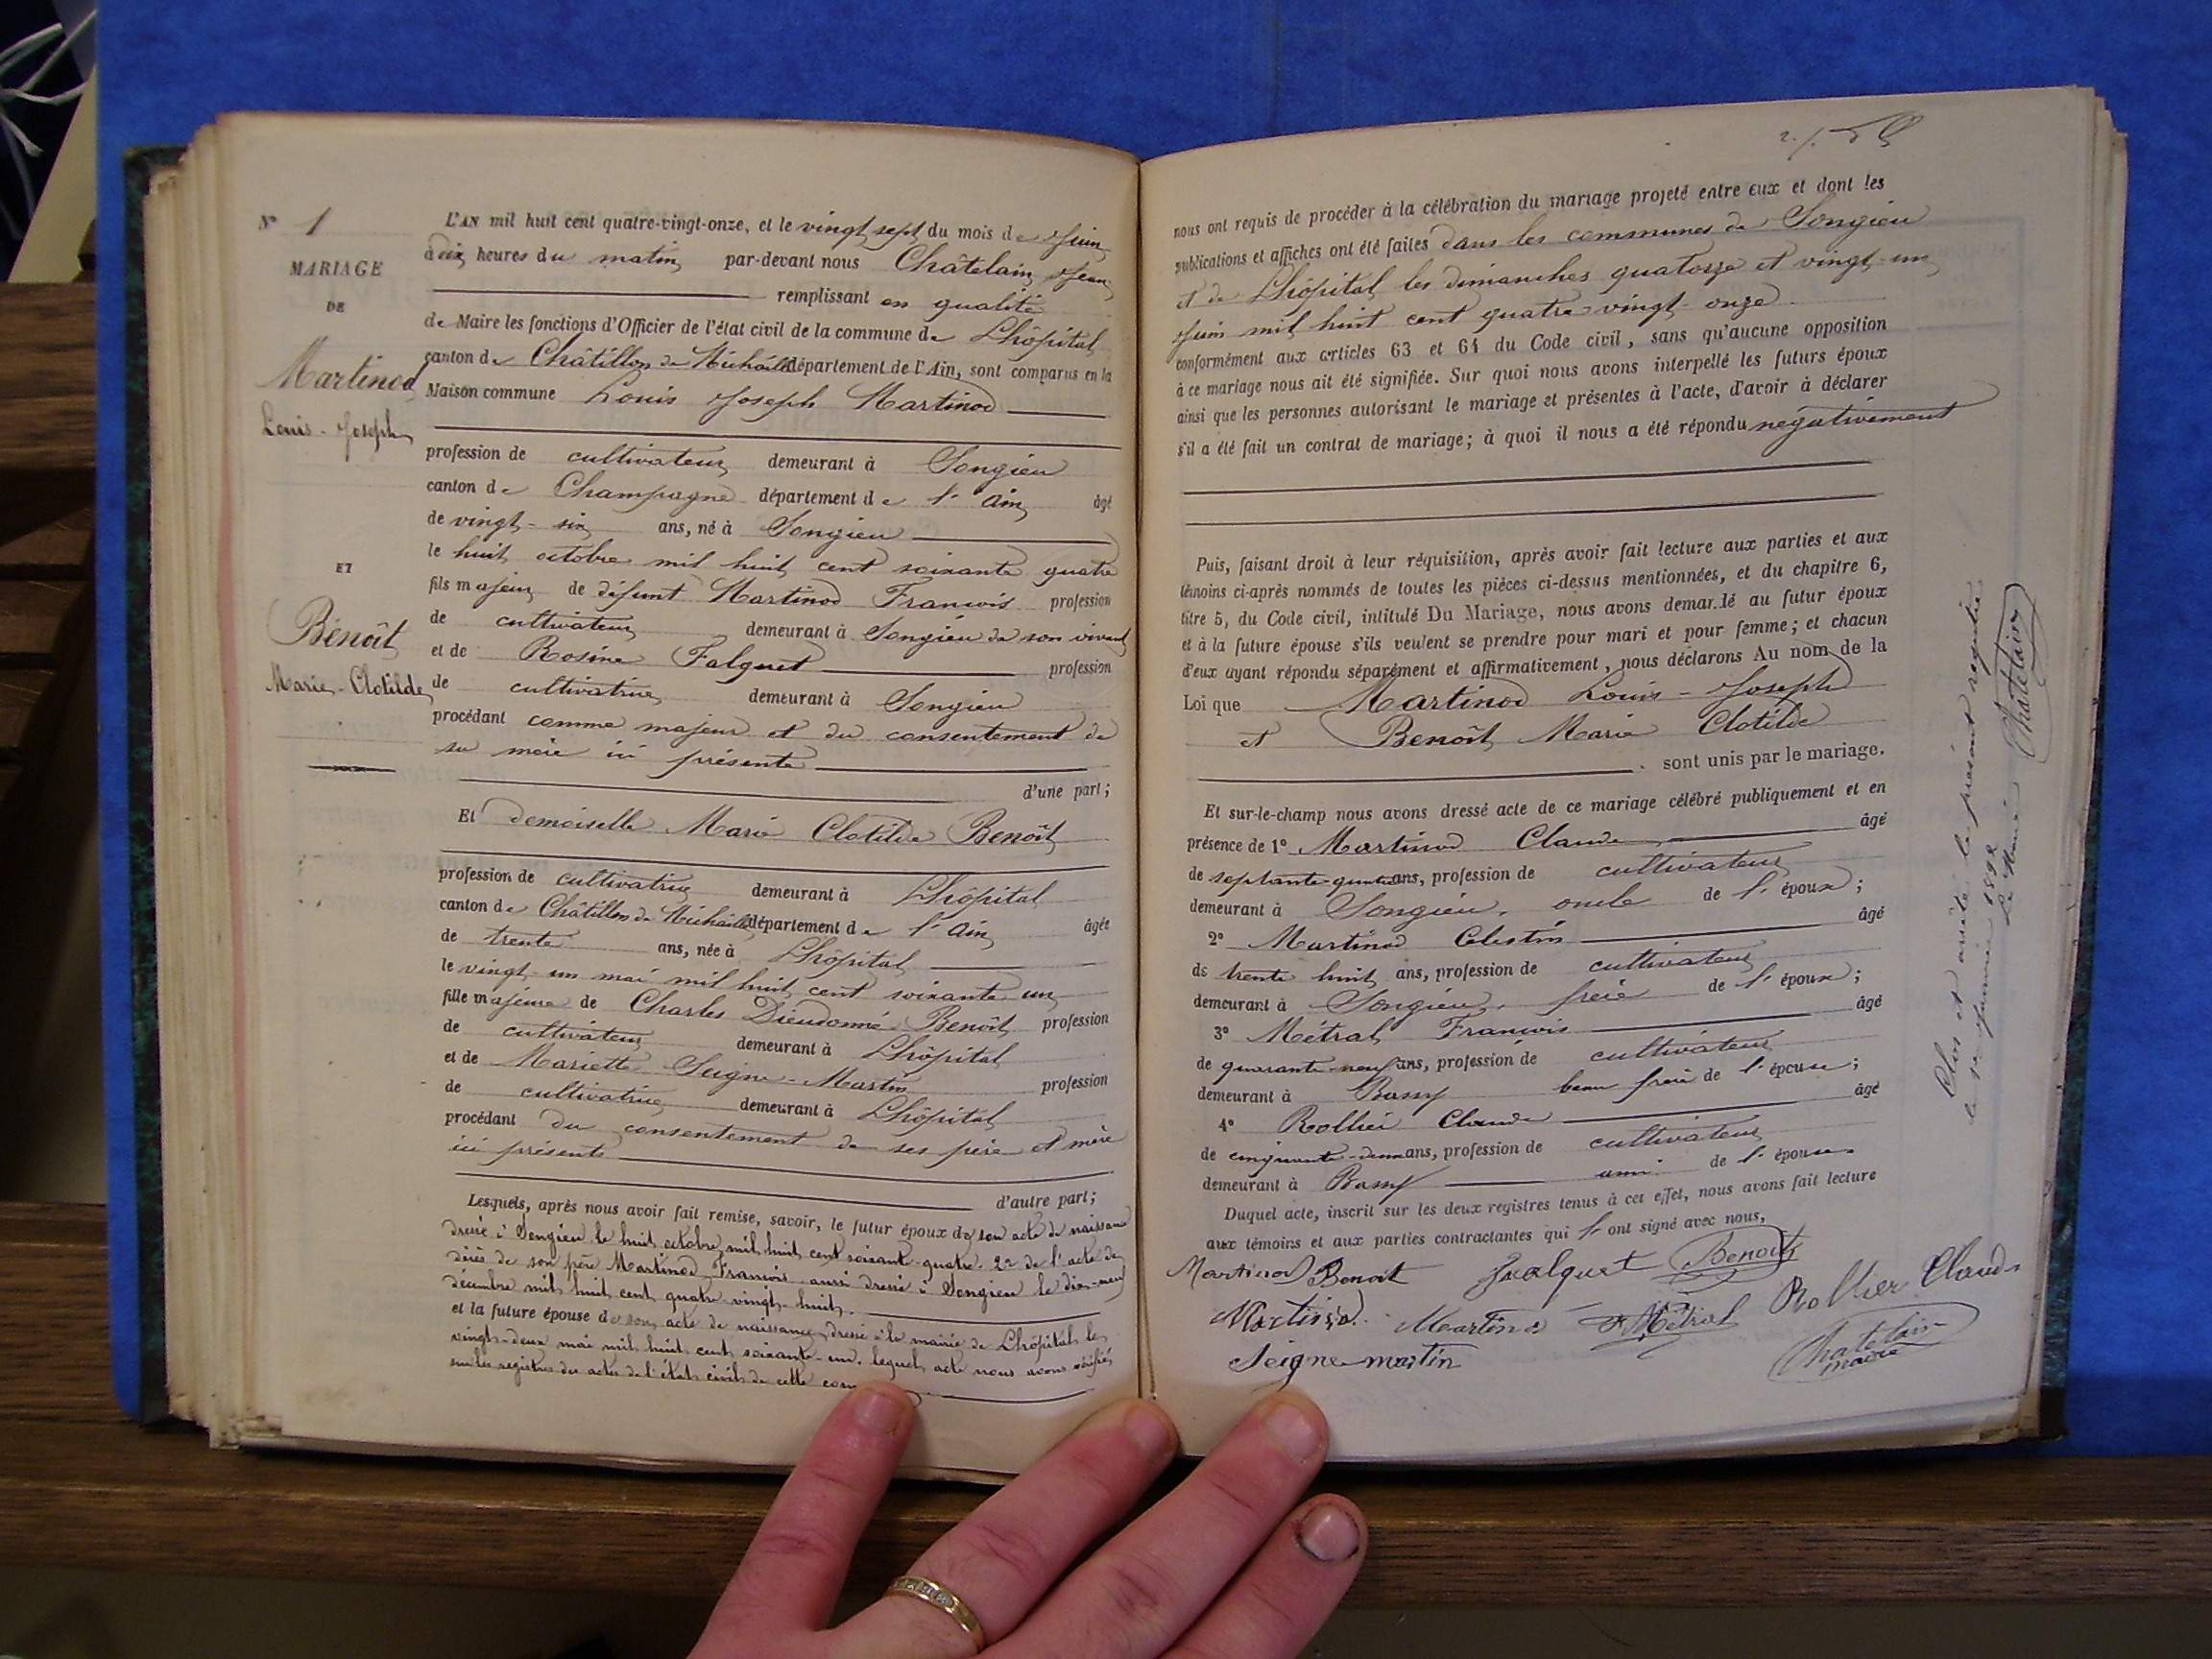 N° 1
MARIAGE
DE
Martinod
Louis-Joseph
ET
Bénoît
Marie-Clotilde
L'AN mil huit cent quatre-vingt-onze, et le vingt sept du mois de Juin
à dix heures du matin par-devant nous Châtelain Jean
remplissant en qualité
de Maire les fonctions d'Officier de l'état civil de la commune de Lhôpital
canton de Châtillon de Michaille département de l'Ain, sont comparus en la
Maison commune Louis Joseph Martinod
profession de cultivateur demeurant à Songieu
canton de Champagne département de l'Ain âgé
de vingt-six ans, né à Songieu
le huit octobre mil huit cent soixante quatre
fils majeur de défunt Martinod François profession
de cultivateur demeurant à Songieu de son vivant
et de Rosine Falquet profession
de cultivatrice demeurant à Songieu
procédant comme majeur et du consentement de
sa mère ici présente
d'une part;
Et demoiselle Marie Clotilde Benoît
profession de cultivatrice demeurant à Lhôpital
canton de Châtillon de Michaille département de l'Ain âgée
de trente ans, née à Lhôpital
le vingt-un mai mil huit cent soixante un
fille majeure de Charles Dieudonné Benoît profession
de cultivateur demeurant à Lhôpital
et de Mariette Seigne-Martin profession
de cultivatrice demeurant à Lhôpital
procédant du consentement de ses père et mère
ici présents
d'autre part;
Lesquels, après nous avoir fait remise, savoir, le futur époux de son acte de naissance
dressé à Songieu le huit octobre mil huit cent soixante-quatre 2° de l'acte de
décès de son père Martinod François aussi dressé à Songieu le dix-neuf
décembre mil huit cent quatre-vingt-huit.
et la future épouse de son acte de naissance dressé à la mairie de Lhôpital le
vingt-deux mai mil huit cent soixante-un. lequel acte nous avons vérifié
sur les registres des actes de l'état civil de cette
nous ont requis de procéder à la célébration du mariage projeté entre eux et dont les
publications et affiches ont été faites dans les communes de Songieu
et de Lhôpital les dimanches quatorze et vingt-un
Juin mil huit cent quatre vingt-onze
conformément aux articles 63 et 64 du Code civil, sans qu'aucune opposition
à ce mariage nous ait été signifiée. Sur quoi nous avons interpellé les futurs époux
ainsi que les personnes autorisant le mariage et présentes à l'acte, d'avoir à déclarer
s'il a été fait un contrat de mariage; à quoi il nous a été répondu négativement
Puis, faisant droit à leur réquisition, après avoir fait lecture aux parties et aux
témoins ci-après nommés de toutes les pièces ci-dessus mentionnées, et du chapitre 6,
titre 5, du Code civil, intitulé Du Mariage, nous avons demandé au futur époux
et à la future épouse s'ils veulent se prendre pour mari et pour femme; et chacun
d'eux ayant répondu séparément et affirmativement, nous déclarons Au nom de la
Loi que Martinod Louis-Joseph
et Benoît Marie Clotilde
sont unis par le mariage.
Et sur-le-champ nous avons dressé acte de ce mariage célébré publiquement et en
présence de 1° Martinod Claude âgé
de septante-quatre ans, profession de cultivateur
demeurant à Songieu, oncle de l'époux;
2° Martinod Célestin âgé
de trente huit ans, profession de cultivateur
demeurant à Songieu, frère de l'époux;
3° Métral François âgé
de quarante-neuf ans, profession de cultivateur
demeurant à Bassy beau frère de l'épouse;
4° Rollier Claude âgé
de cinquante-deux ans, profession de cultivateur
demeurant à Bassy ami de l'épouse.
Duquel acte, inscrit sur les deux registres tenus à cet effet, nous avons fait lecture
aux témoins et aux parties contractantes qui l'ont signé avec nous,
Martinod Benoit Falquet Benoit
Martinod Martinod F Métral Rollier Claude
Seigne-martin Chatelain
maire
Clos et arrêté le présent registre
le 1er Janvier 1892
Le Maire
Chatelain